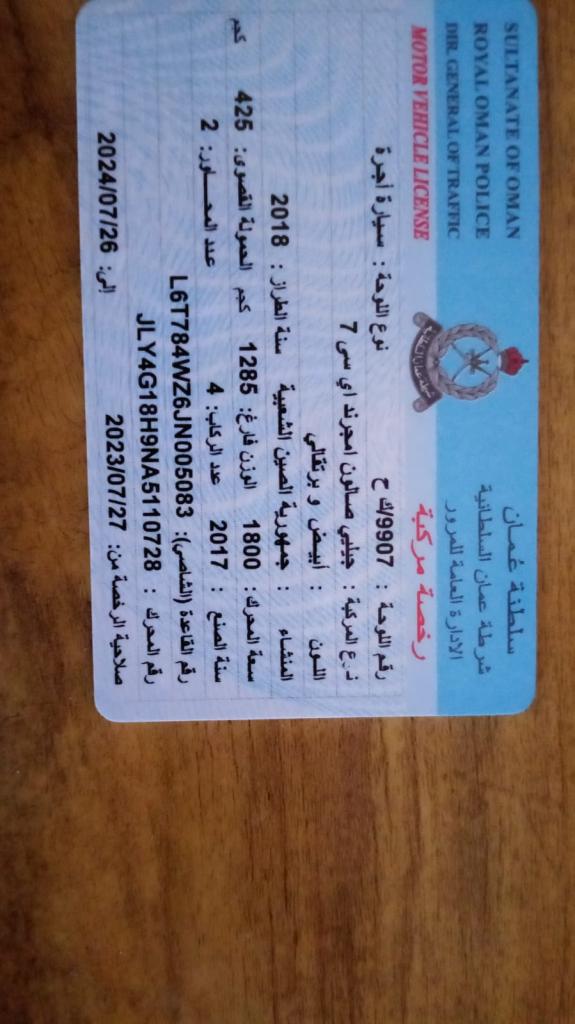 SULTANATE OF OMAN
ROYAL OMAN POLICE
DIR. GENERAL OF TRAFFIC
MOTOR VEHICLE LICENSE
سلطنة عُمان
شرطة عمان السلطانية
الادارة العامة للمرور
رخصة مركبة
رقم اللوحة : 9907/ك ح نوع اللوحة : سيارة أجرة
نوع المركبة : جيلي صالون امجرند اي سى 7
اللون : أبيض و برتقالي
المنشاء : جمهورية الصين الشعبية سنة الطراز : 2018
سعة المحرك: 1800 الوزن فارغ: 1285 كجم الحمولة القصوى: 425 كجم
سنة الصنع : 2017 عدد الركاب: 4 عدد المحاور: 2
رقم القاعدة (الشاصي): L6T784WZ6JN005083
رقم المحرك : JLY4G18H9NA5110728
صلاحية الرخصة من: 2023/07/27 إلى: 2024/07/26